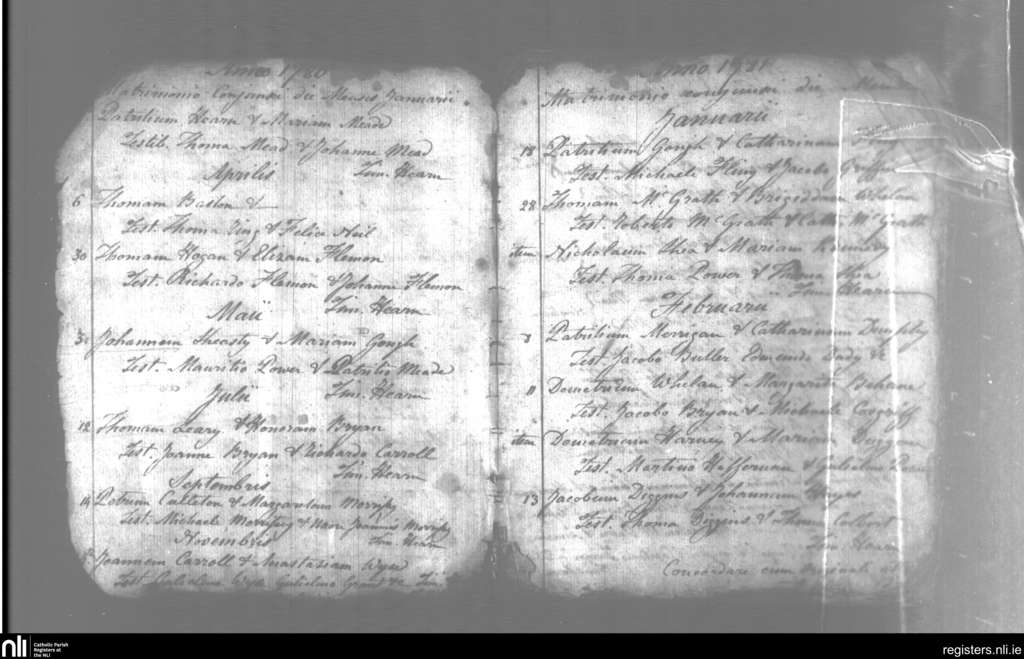 Anno 1780
Matrimonio Conjuncti die Mensis Januarii
Patritium Hearn & Mariam Meade
Testib. Thoma Mead & Johanne Mead
Aprilis Tim. Hearn
6 Thomam &
Test. Thoma King & Felice
30 Thomam Hogan & Elizam Flemon
Test. Richardo Flemon & Johanne Flemon
Maii Tim. Hearn
Johannem Sheasty & Mariam Gough
Test. Mauritio Power & Patritio Meade
Julii Tim. Hearn
12 Thomam Leary & Honoram Bryan
Test. Joanne Bryan & Richardo Carroll
Tim. Hearn
Septembris
14 Patrum & Margaretam
Test. Michaele & Joannis
Novembris Tim. Hearn
Joannem Carroll & Anastasiam Wyse
Test. Wyse Gulielmo Grant &c Tim
Anno
Matrimonio conjuncti die
Januarii
18 Patritium Gough & Catharinam
Test. Michaele Fling & Jacobo Griffin
28 Thomam McGrath & Brigidam Whelan
Test. Roberto McGrath & Cath. McGrath
item Nicholaum Shea & Mariam Kennedy
Test. Thoma Power & Thoma Shea
Tim Hearn
Februarii
8 Patritium Merrigan & Catharinam Dempsy
Test. Jacobo Butler Edmundo Dady &c
11 Demetrium Whelan & Margarita Behane
Test. Jacobo Bryan & Michaele Cosgriff
item Demetrium Harney & Mariam
Test. Martino Heffernan & Gulielmo
13 Jacobum Diggins & Johannam Hayes
Test. Thoma Diggins & Thoma
Tim Hearn
Concordare cum originali
nli
Catholic Parish
Registers at
the NLI
registers.nli.ie